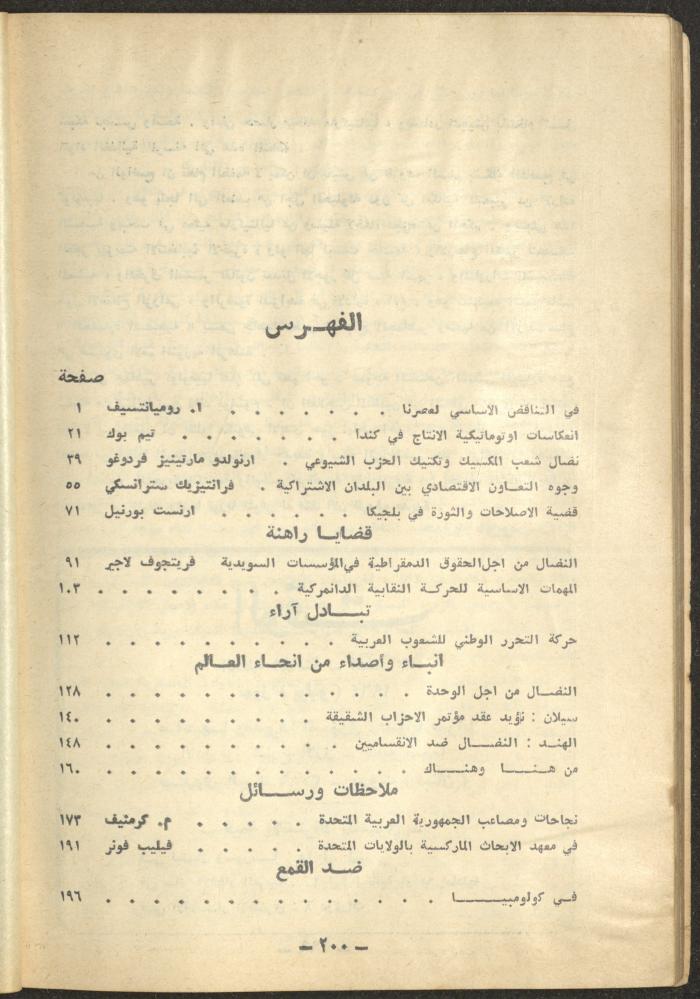 الفهـرس
صفحة
في التناقض الاساسي لعصرنا . . . . . . . ا. روميانتسيف ١
انعكاسات اوتوماتيكية الانتاج في كندا . . . . . . . تيم بوك ٢١
نضال شعب المكسيك وتكتيك الحزب الشيوعي . ارنولدو مارتينيز فردوغو ٣٩
وجوه التعـاون الاقتصادي بين البلدان الاشتراكية . فرانتيزيك سترانسكي ٥٥
قضية الاصلاحات والثورة في بلجيكا . . . . . ارنست بورنيل ٧١
قضايـا راهنة
النضال من اجل الحقوق الدمقراطية في المؤسسات السويدية فريتجوف لاجير ٩١
المهمات الاساسية للحركـة النقابية الدانمركية . . . . . . . . ١٠٣
تبـادل آراء
حركة التحرر الوطني للشعوب العربية . . . . . . . . . . ١١٢
انبـاء وأصداء من انحـاء العـالم
النضـال من اجل الوحدة . . . . . . . . . . . . ١٢٨
سيلان : نؤيد عقد مؤتمر الاحزاب الشقيقة . . . . . . . . . ١٤٠
الهنـد : النضـــال ضد الانقساميين . . . . . . . . . . ١٤٨
من هنــــا وهنـــاك . . . . . . . . . . . . ١٦٠
ملاحظات ورســائل
نجاحات ومصاعب الجمهورية العربية المتحدة . . . . . م. كرمنيف ١٧٣
في معهد الابحاث الماركسية بالولايات المتحدة . . . . . فيليب فونر ١٩١
ضـد القمع
فـي كولومبيــــــا . . . . . . . . . . . . . ١٩٦
— ٢٠٠ —